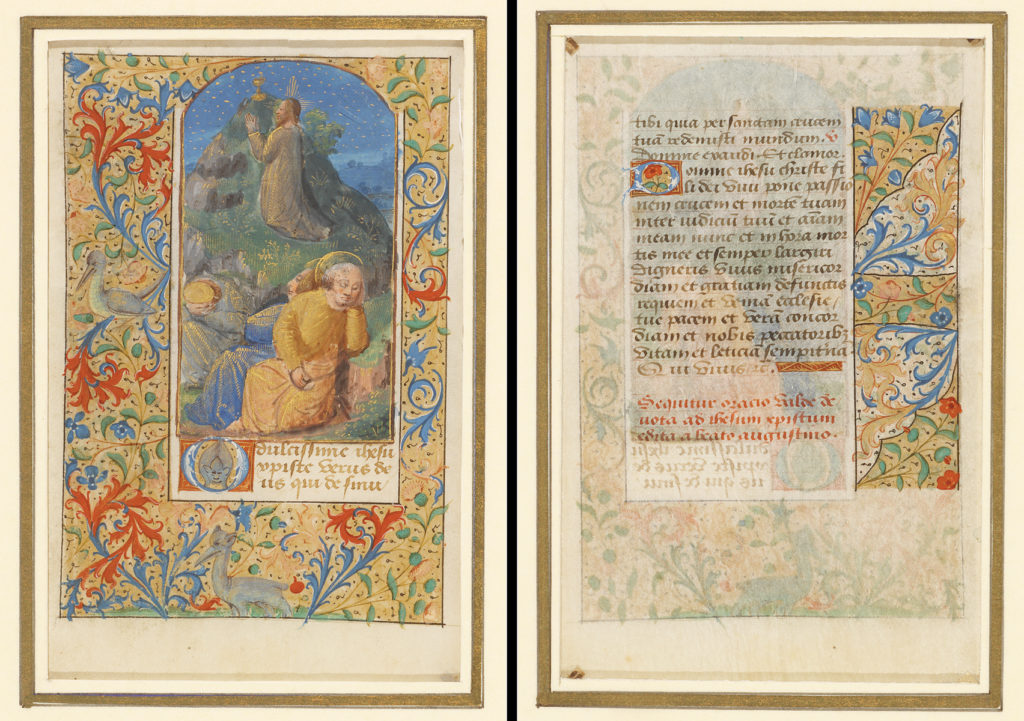 dulcissime ihesu
xpiste verus de
us qui de sinu
tibi quia per sanctam crucem
tuā redemisti mundum. V
Domine exaudi. Et clamor.
Domine ihesu christe fi
li dei vivi pone passio
nem crucem et mortē tuam
inter iudiciū tuū et aīam
meam nunc et in hora mor
tis mee et semper largiri
digneris vivis misericor
diam et gratiam defunctis
requiem et veniā ecclesie
tue pacem et verā concor
diam et nobis peccatoribꝫ
vitam et leticiā sempiternā
Qui vivis
Sequitur oracio valde de
vota ad ihesum xpistum
edita a beato augustino.